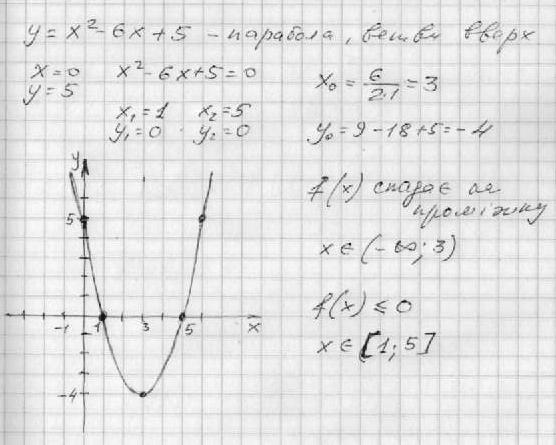 y = x² - 6x + 5 - парабола, ветви вверх
x = 0
y = 5
x² - 6x + 5 = 0
x₁ = 1 x₂ = 5
y₁ = 0 y₂ = 0
x₀ = 6/2·1 = 3
y₀ = 9 - 18 + 5 = -4
f(x) спадає на
проміжку
x ∈ (-∞; 3)
f(x) ≤ 0
x ∈ [1; 5]
y
5
-1 1 3 5 x
-4